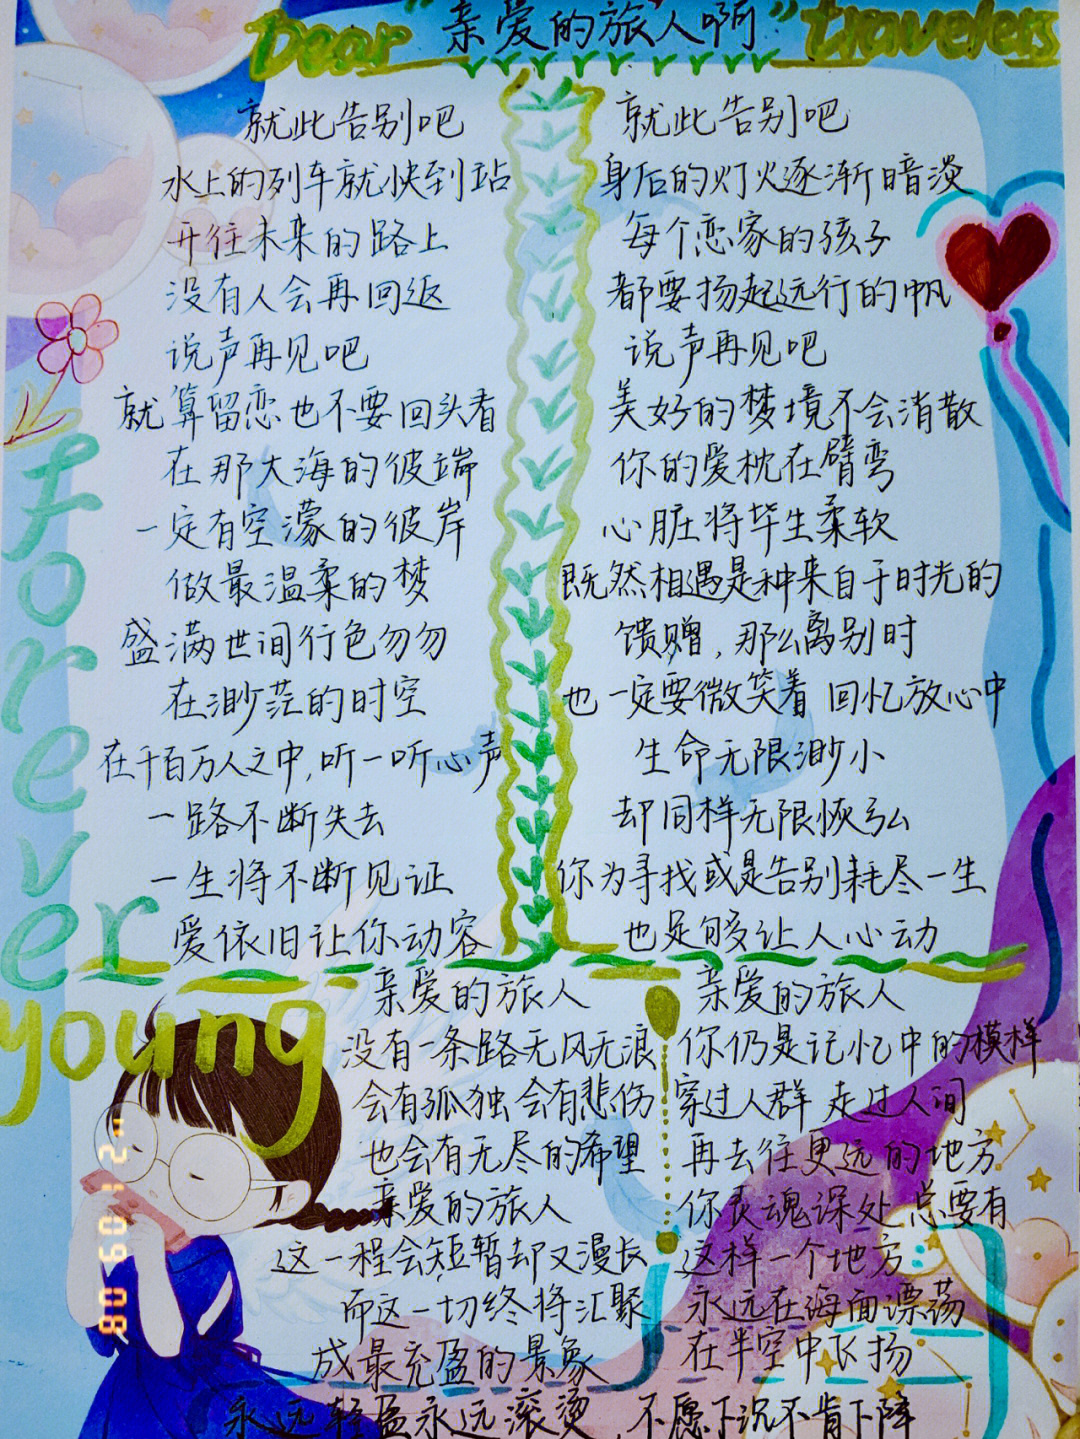 Dear "亲爱的旅人啊" travelers
就此告别吧
水上的列车就快到站
开往未来的路上
没有人会再回返
说声再见吧
就算留恋也不要回头看
在那大海的彼端
一定有空濛的彼岸
做最温柔的梦
盛满世间行色匆匆
在渺茫的时空
在千百万人之中,听一听心声
一路不断失去
一生将不断见证
爱依旧让你动容
就此告别吧
身后的灯火逐渐暗淡
每个恋家的孩子
都要扬起远行的帆
说声再见吧
美好的梦境不会消散
你的爱枕在臂弯
心脏将毕生柔软
既然相遇是种来自于时光的
馈赠,那么离别时
也一定要微笑着 回忆放心中
生命无限渺小
却同样无限恢弘
你为寻找或是告别耗尽一生
也足够让人心动
亲爱的旅人
没有一条路无风无浪
会有孤独 会有悲伤
也会有无尽的希望
亲爱的旅人
这一程会短暂却又漫长
而这一切终将汇聚
成最充盈的景象
亲爱的旅人
你仍是记忆中的模样
穿过人群 走过人间
再去往更远的地方
你灵魂深处 总要有
这样一个地方
永远在海面漂荡
在半空中飞扬
永远轻盈永远滚烫 不愿下沉不肯下降
Forever
young